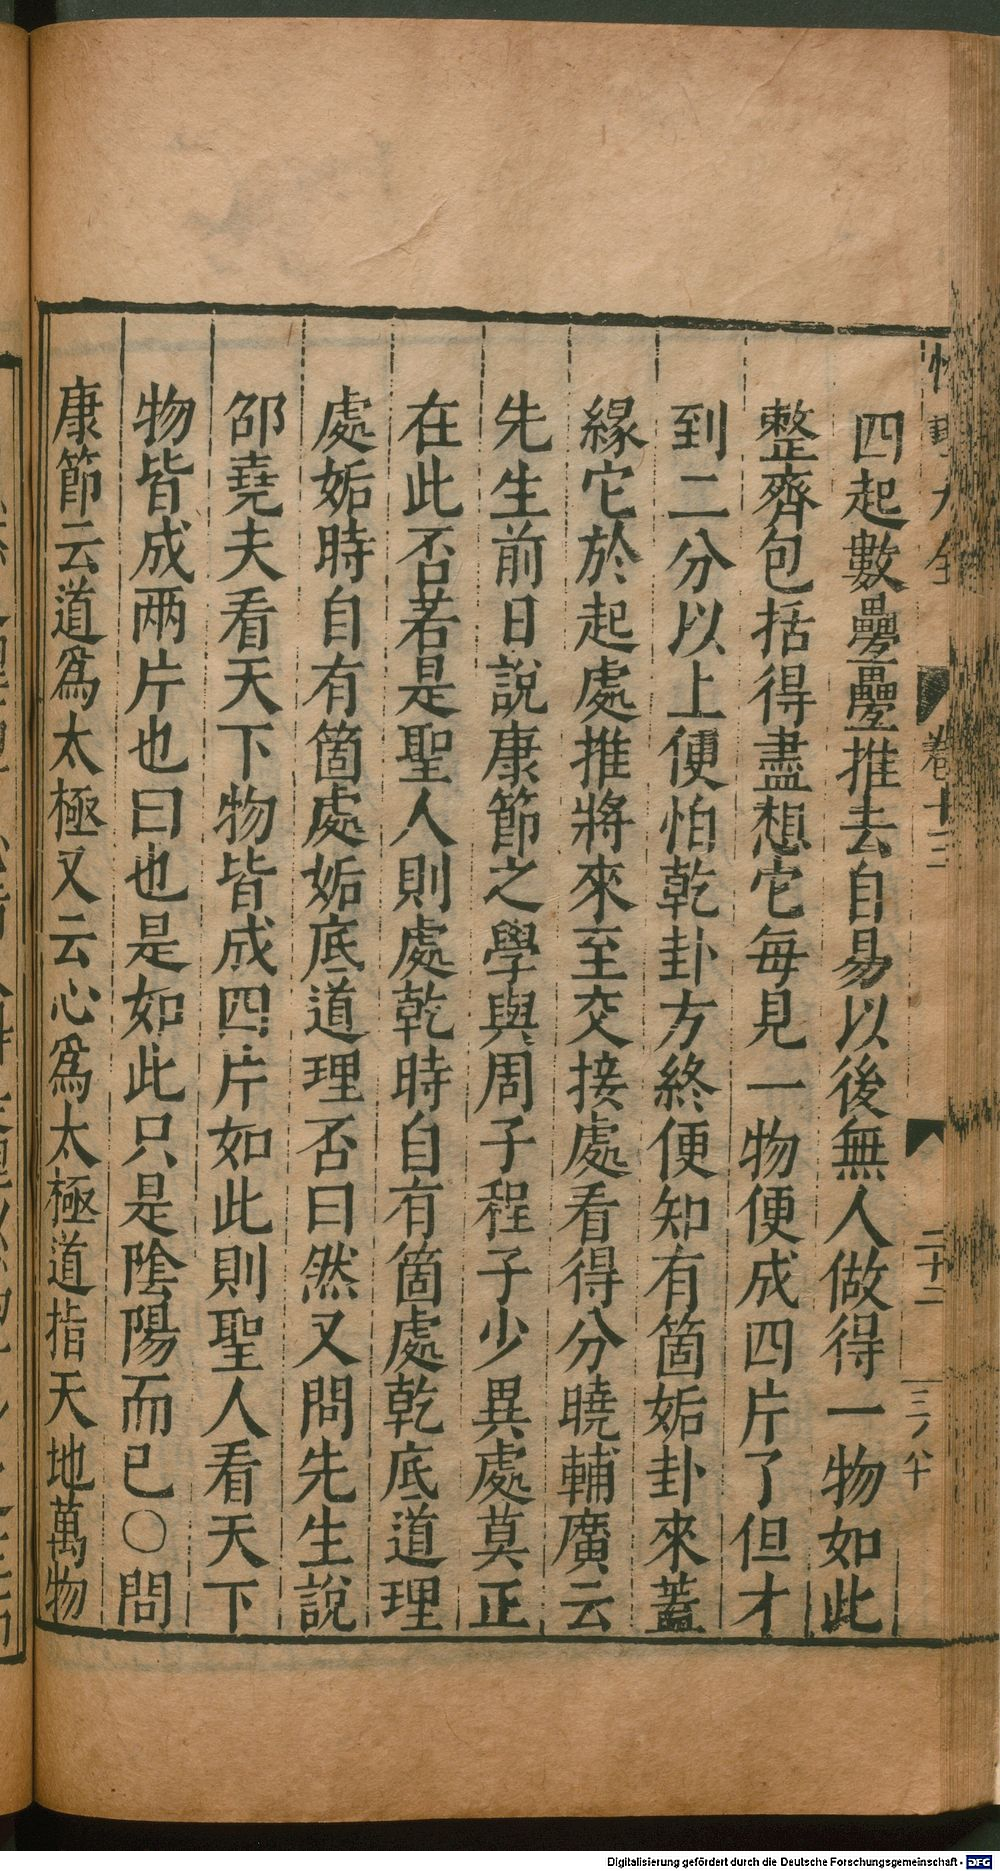 四起數疊疊推去自易以後無人做得一物如此
整齊包括得盡想它每見一物便成四片了但才
到二分以上便怕乾卦方終便知有箇姤卦來蓋
緣它於起處推將來至交接處看得分曉輔廣云
先生前日說康節之學與周子程子少異處莫正
在此否若是聖人則處乾時自有箇處乾底道理
處姤時自有箇處姤底道理否曰然又問先生說
邵堯夫看天下物皆成四片如此則聖人看天下
物皆成兩片也曰也是如此只是陰陽而已○問
康節云道爲太極又云心爲太極道指天地萬物
卷十二
二十二
Digitalisierung gefördert durch die Deutsche Forschungsgemeinschaft - DFG